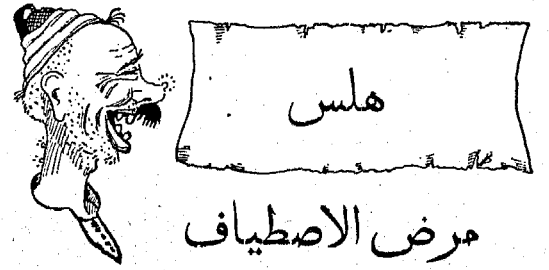 هلس
مرض الاصطياف